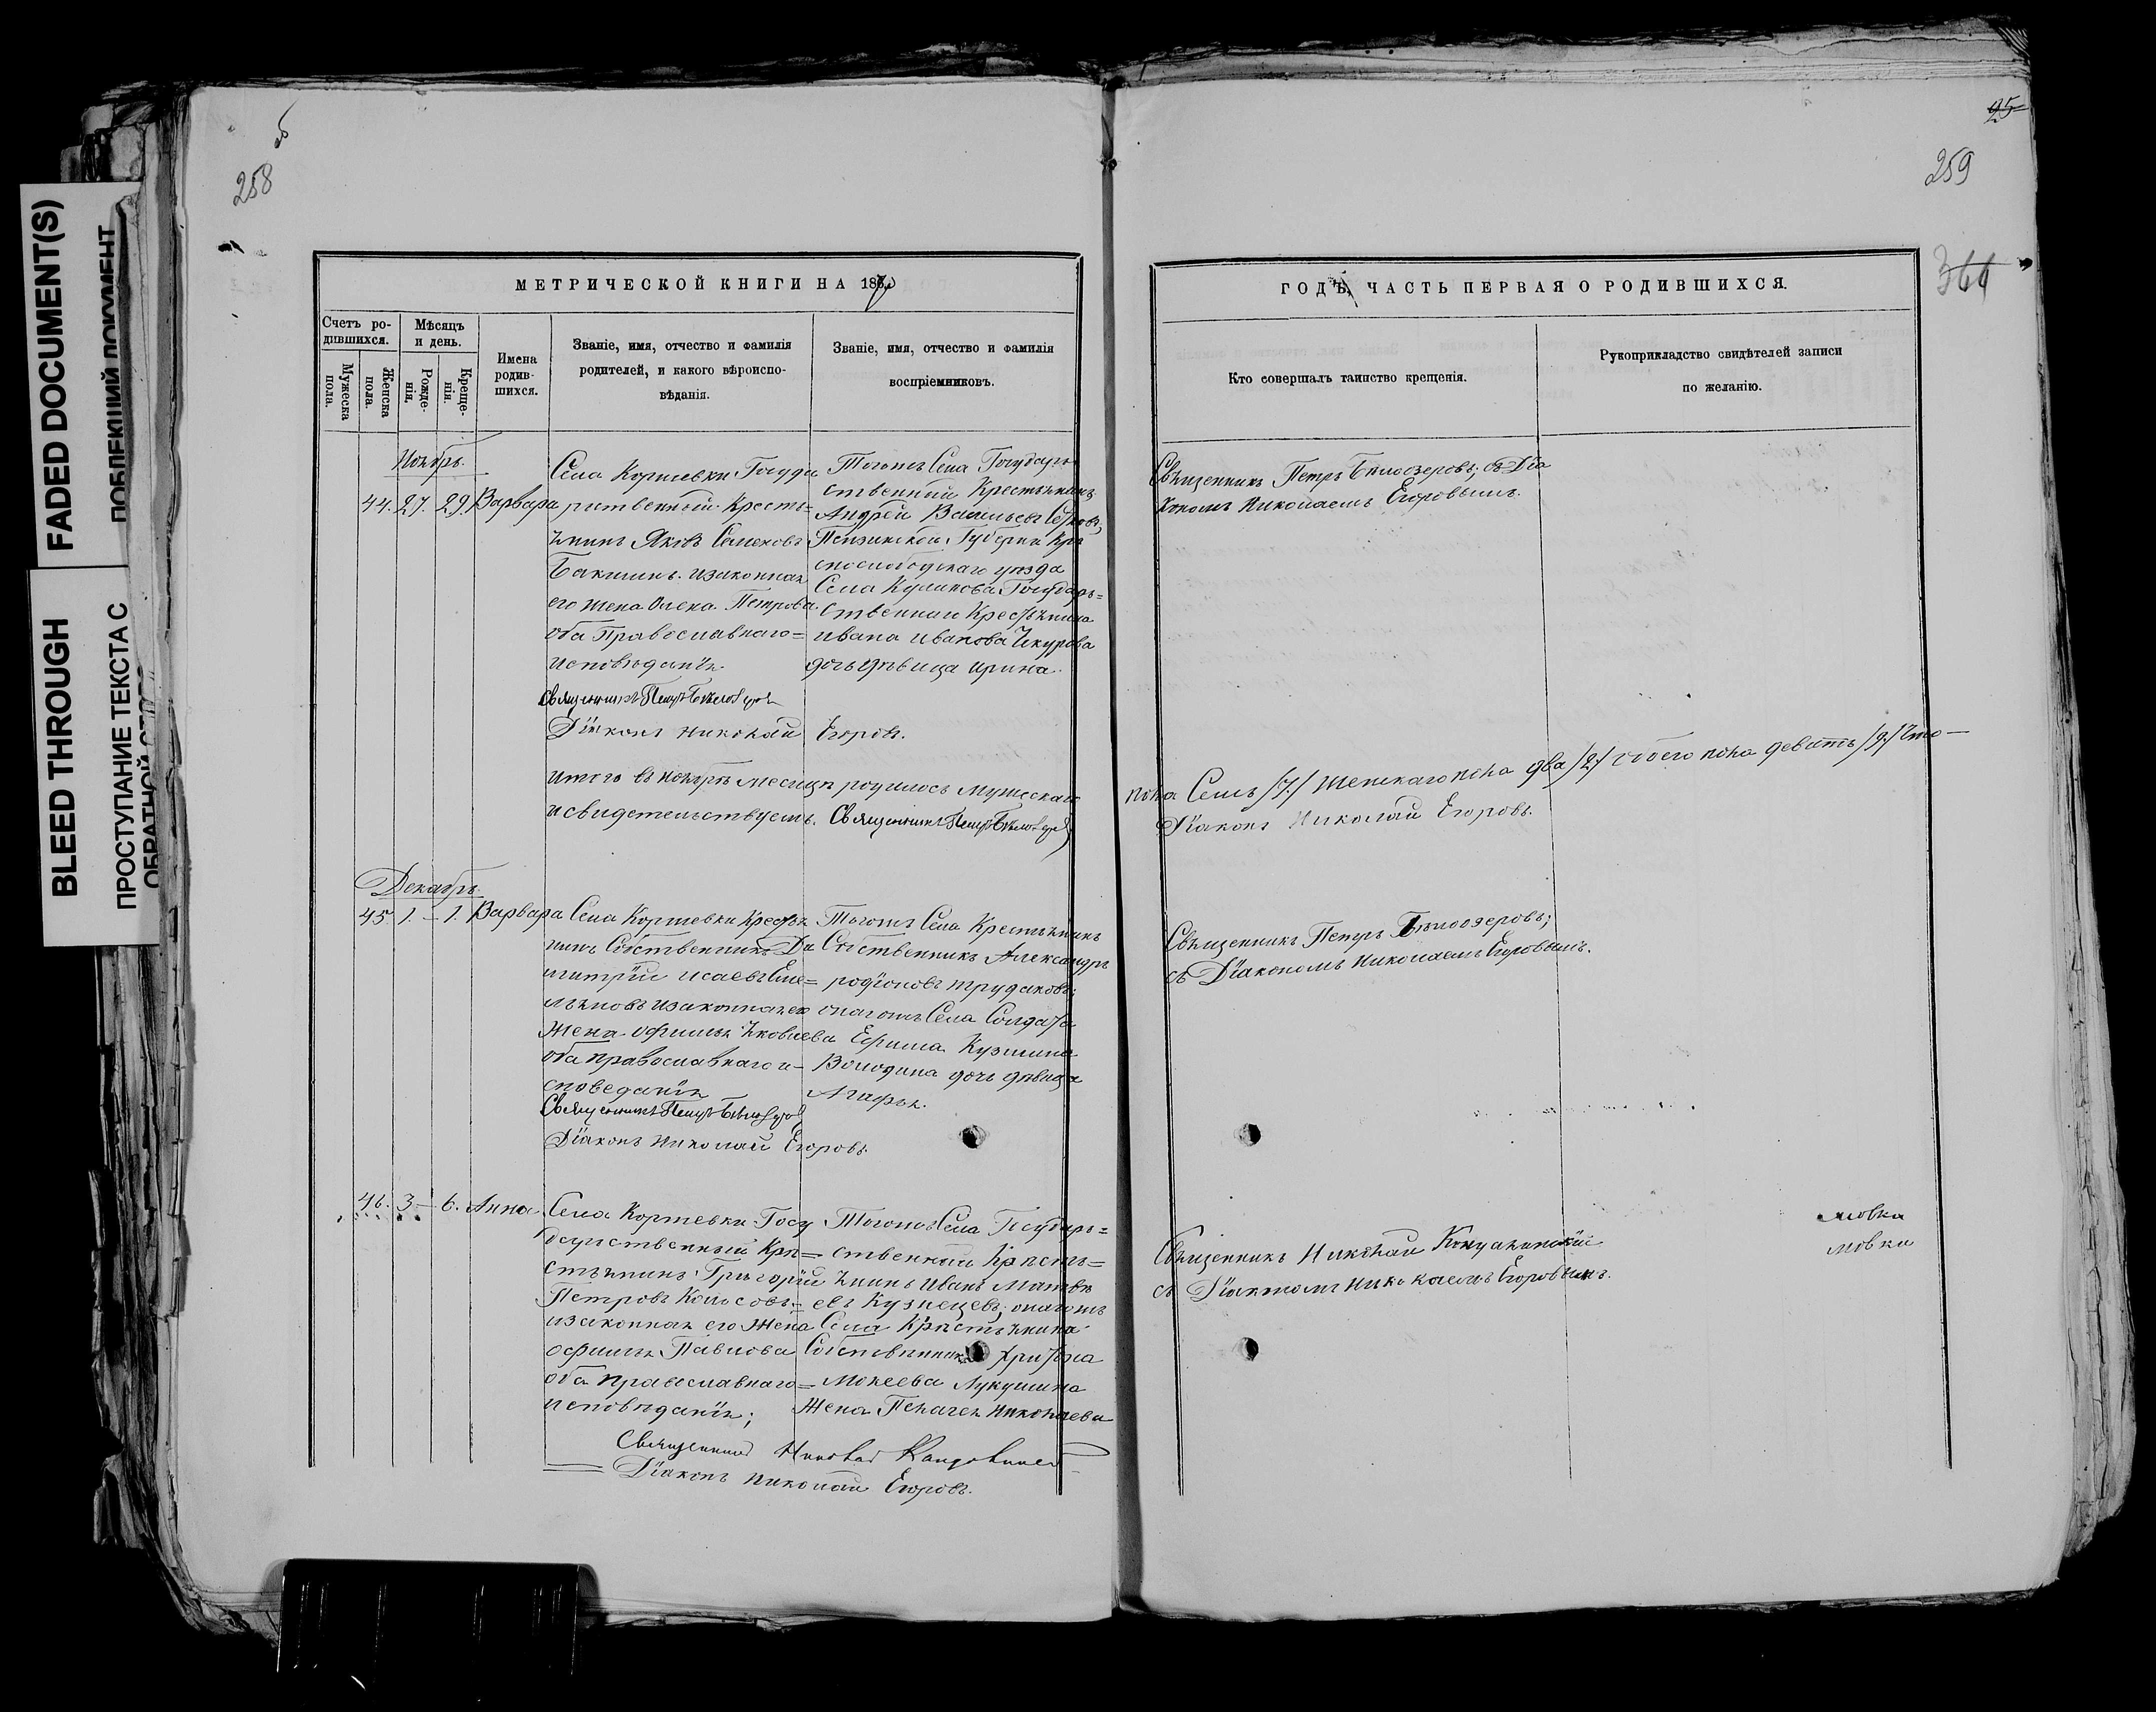 FADED DOCUMENT(S)
ПОБЛЕКШИЙ ДОКУМЕНТ
BLEED THROUGH
ПРОСТУПАНИЕ ТЕКСТА С
ОБРАТНОЙ
об
258
МЕТРИЧЕСКОЙ КНИГИ НА 18
Счетъ ро-
дившихся.
Мужеска
пола.
Женска
пола.
Мѣсяцъ
и день.
Рожде-
нія.
Креще-
нія.
Имена
родив-
шихся.
Званіе, имя, отчество и фамилія
родителей, и какого вѣроиспо-
вѣданія.
Званіе, имя, отчество и фамилія
воспріемниковъ.
Ноябрь.
44. 27. 29. Варвара
Села Коржевки Госуда
рственный Кресть=
янинъ Яковъ Семеновъ
Бакшинъ. и законная
его жена Олена Петрова
оба Православнаго=
исповѣданія.
Священникъ Петръ Бѣлозеровъ
Діаконъ Николай Егоровъ.
Тогожъ Села Государ
ственный Крестьянинъ
Андрей Васильевъ
Пензинской Губерніи Кра
снослободскаго уѣзда
Села Куликова Государ=
ственнаи Крестьянина
Ивана Иванова Чекурова
дочь дѣвица Ирина.
Итого въ ноябрѣ месяцѣ родилось мужескаго
и свидетельствуемъ. Священникъ Петръ Бѣлозеровъ
Декабрь.
45. 1. – 1. Варвара
Села Коржевки Крестья
нинъ Собственникъ Ди
митрій Исаевъ Еме=
льяновъ и законная его
Жена Офимья Яковлева
оба православнаго и-
споведанія
Священникъ Петръ Бѣлозеровъ
Діаконъ Николай Егоровъ.
Тогожъ Села Крестьянинъ
Собственникъ Александръ
родіоновъ трудаковъ;
онагожъ Села Солдата
Ефима Кузмина
Володина дочь дѣвица
Агафья.
46. 3 – 6. Анна
Села Коржевки Госу
дарственный Кре=
стьянинъ Григорій
Петровъ Колосовъ.=
и законная его Жена
офимья Павлова
оба православнаго=
исповѣданія;
Тогожъ Села Государ=
ственный Кресть=
янинъ Иванъ Матвѣ
евъ Кузнецевъ; онагожъ
Села Крестьянина
Собственника
Мокеева Лукушина
Жена Пелагея Николаева
Священникъ Николай
Діаконъ Николай Егоровъ.
25
259
366
ГОДЪ, ЧАСТЬ ПЕРВАЯ О РОДИВШИХСЯ.
Кто совершалъ таинство крещенія.
Рукоприкладство свидѣтелей записи
по желанію.
Священникъ Петръ Бѣлозеровъ; съ Діа
кономъ Николаемъ Егоровымъ.
пола Семь /7/ Женскаго пола два /2/ обоего пола девять /9/ Что –
Діаконъ Николай Егоровъ.
Священникъ Петръ Бѣлоозеровъ;
съ Діакономъ Николаемъ Егоровымъ.
Священникъ Николай
съ Діакономъ Николаемъ Егоровымъ.
мовка
мовки